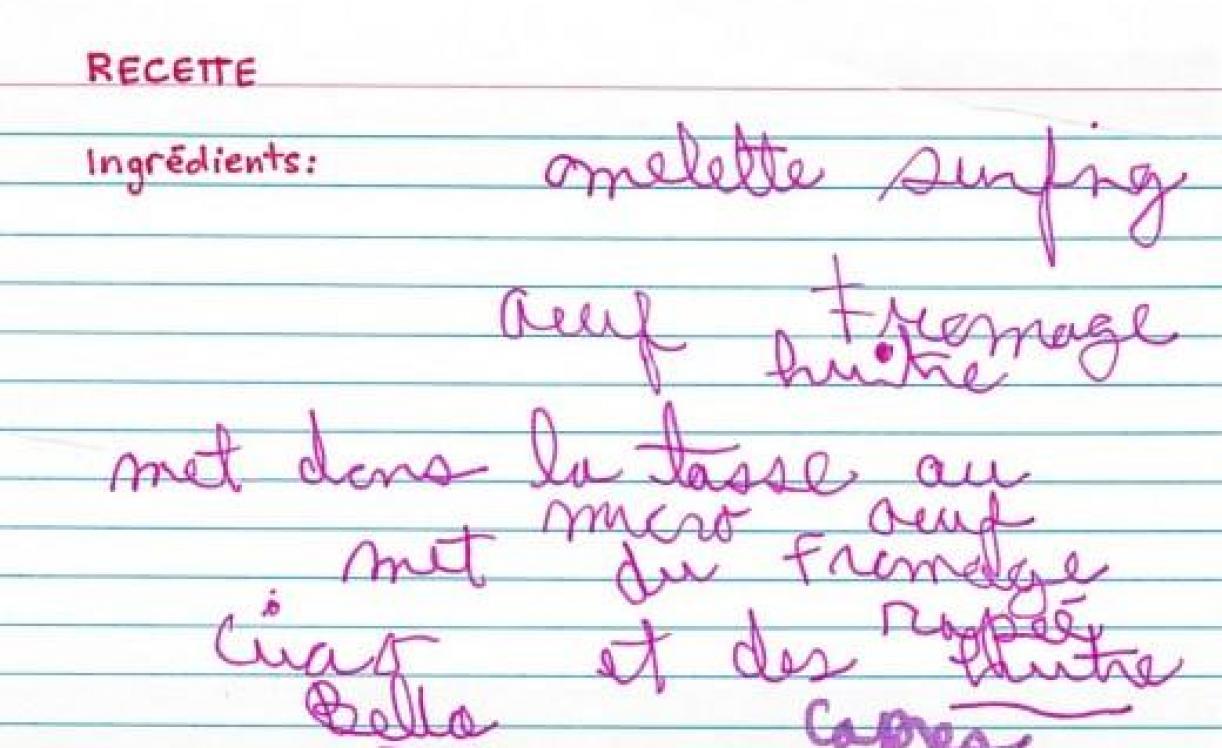 RECETTE
Ingrédients:
omelette surfing
oeuf fromage
huitre
met dans la tasse au
micro oeuf
met du fromage
rapée
ciao et des huitre
Bella
Capres